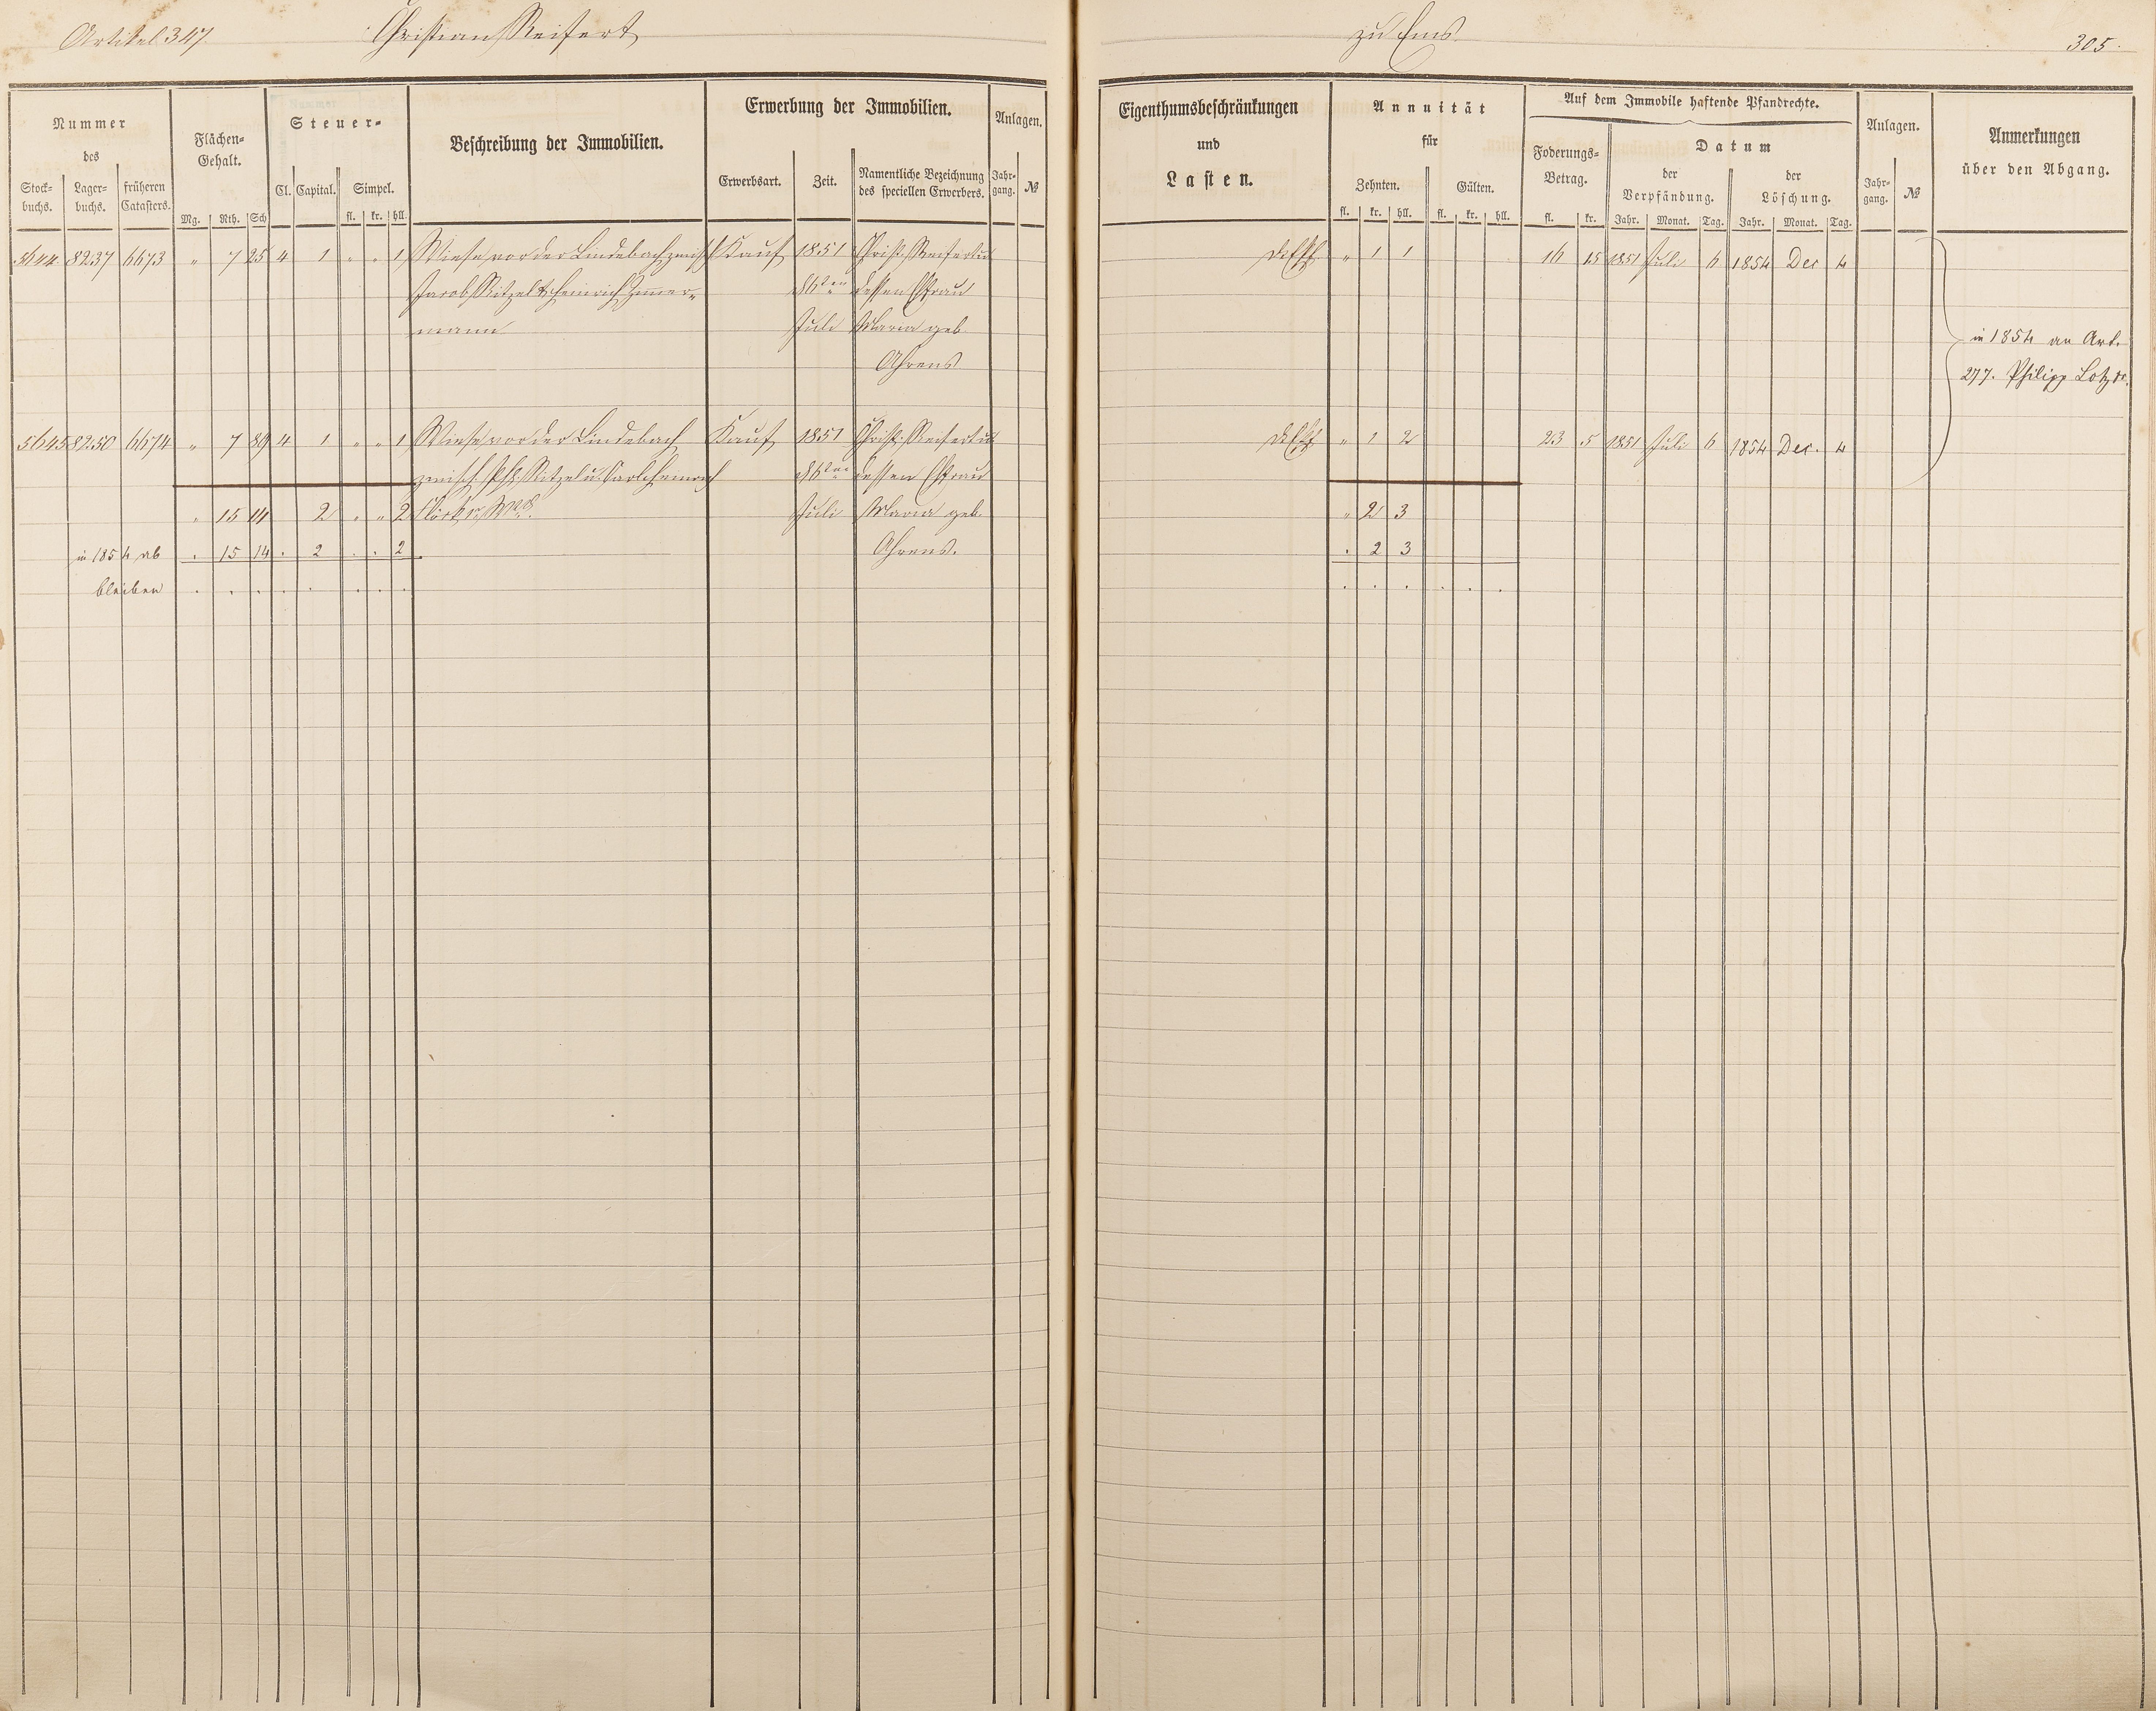 Artikel 347. Christian Reifert zu Ems. 305.
Nummer des
Stockbuchs. Lagerbuchs. früheren Catasters.
Flächen-Gehalt.
Mg. Rth. Sch
Steuer-
Cl. Capital. Simpel.
fl. kr. hll.
Beschreibung der Immobilien.
Erwerbung der Immobilien.
Erwerbsart. Zeit. Namentliche Bezeichnung des speciellen Erwerbers.
Anlagen.
Jahrgang. №
Eigenthumsbeschränkungen
und
Lasten.
Annuität
für
Zehnten. Gülten.
fl. kr. hll. fl. kr. hll.
Auf dem Immobile haftende Pfandrechte.
Foderungs-Betrag.
fl. kr.
Datum
der Verpfändung. der Löschung.
Jahr. Monat. Tag. Jahr. Monat. Tag.
Anlagen.
Jahrgang. №
Anmerkungen
über den Abgang.
5644 8237 6673 " 7 25 4 1 " " 1 Wiese vor der Lindebach zwisch Kauf 1851 Christ. Reifert u " 1 1 16 15 1851 Juli 6 1854 Dec 4
Jacob Ritzel & Heinrich Zimmer- dessen Efrau
mann Juli Maria geb.
Ahrens
in 1854 an Art.
277. Philipp Lotz
5645 8250 6674 " 7 89 4 1 " " 1 Wiese vor der Lindebach Kauf 1851 Christ. Reifert u " 1 2 23 5 1851 Juli 6 1854 Dec. 4
zwisch. Ph. Ritzel u. Carl Heinrich dessen Efrau
" 15 14 2 " " 2 Juli Maria geb. " 2 3
in 1854 ab . 15 14 . 2 . . 2 Ahrens. . 2 3
bleiben . . . . . . . . . . . . . .